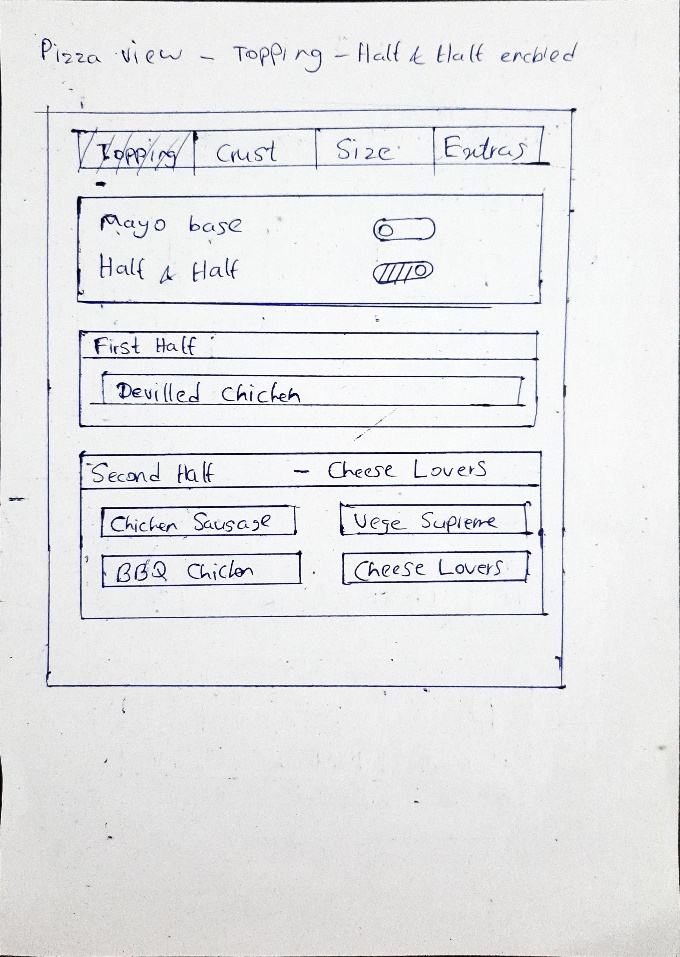 Pizza view - Topping - Half & Half enabled
Topping Crust Size Extras
Mayo base
Half & Half
First Half
Devilled Chicken
Second Half - Cheese Lovers
Chicken Sausage Vege Supreme
BBQ Chicken Cheese Lovers